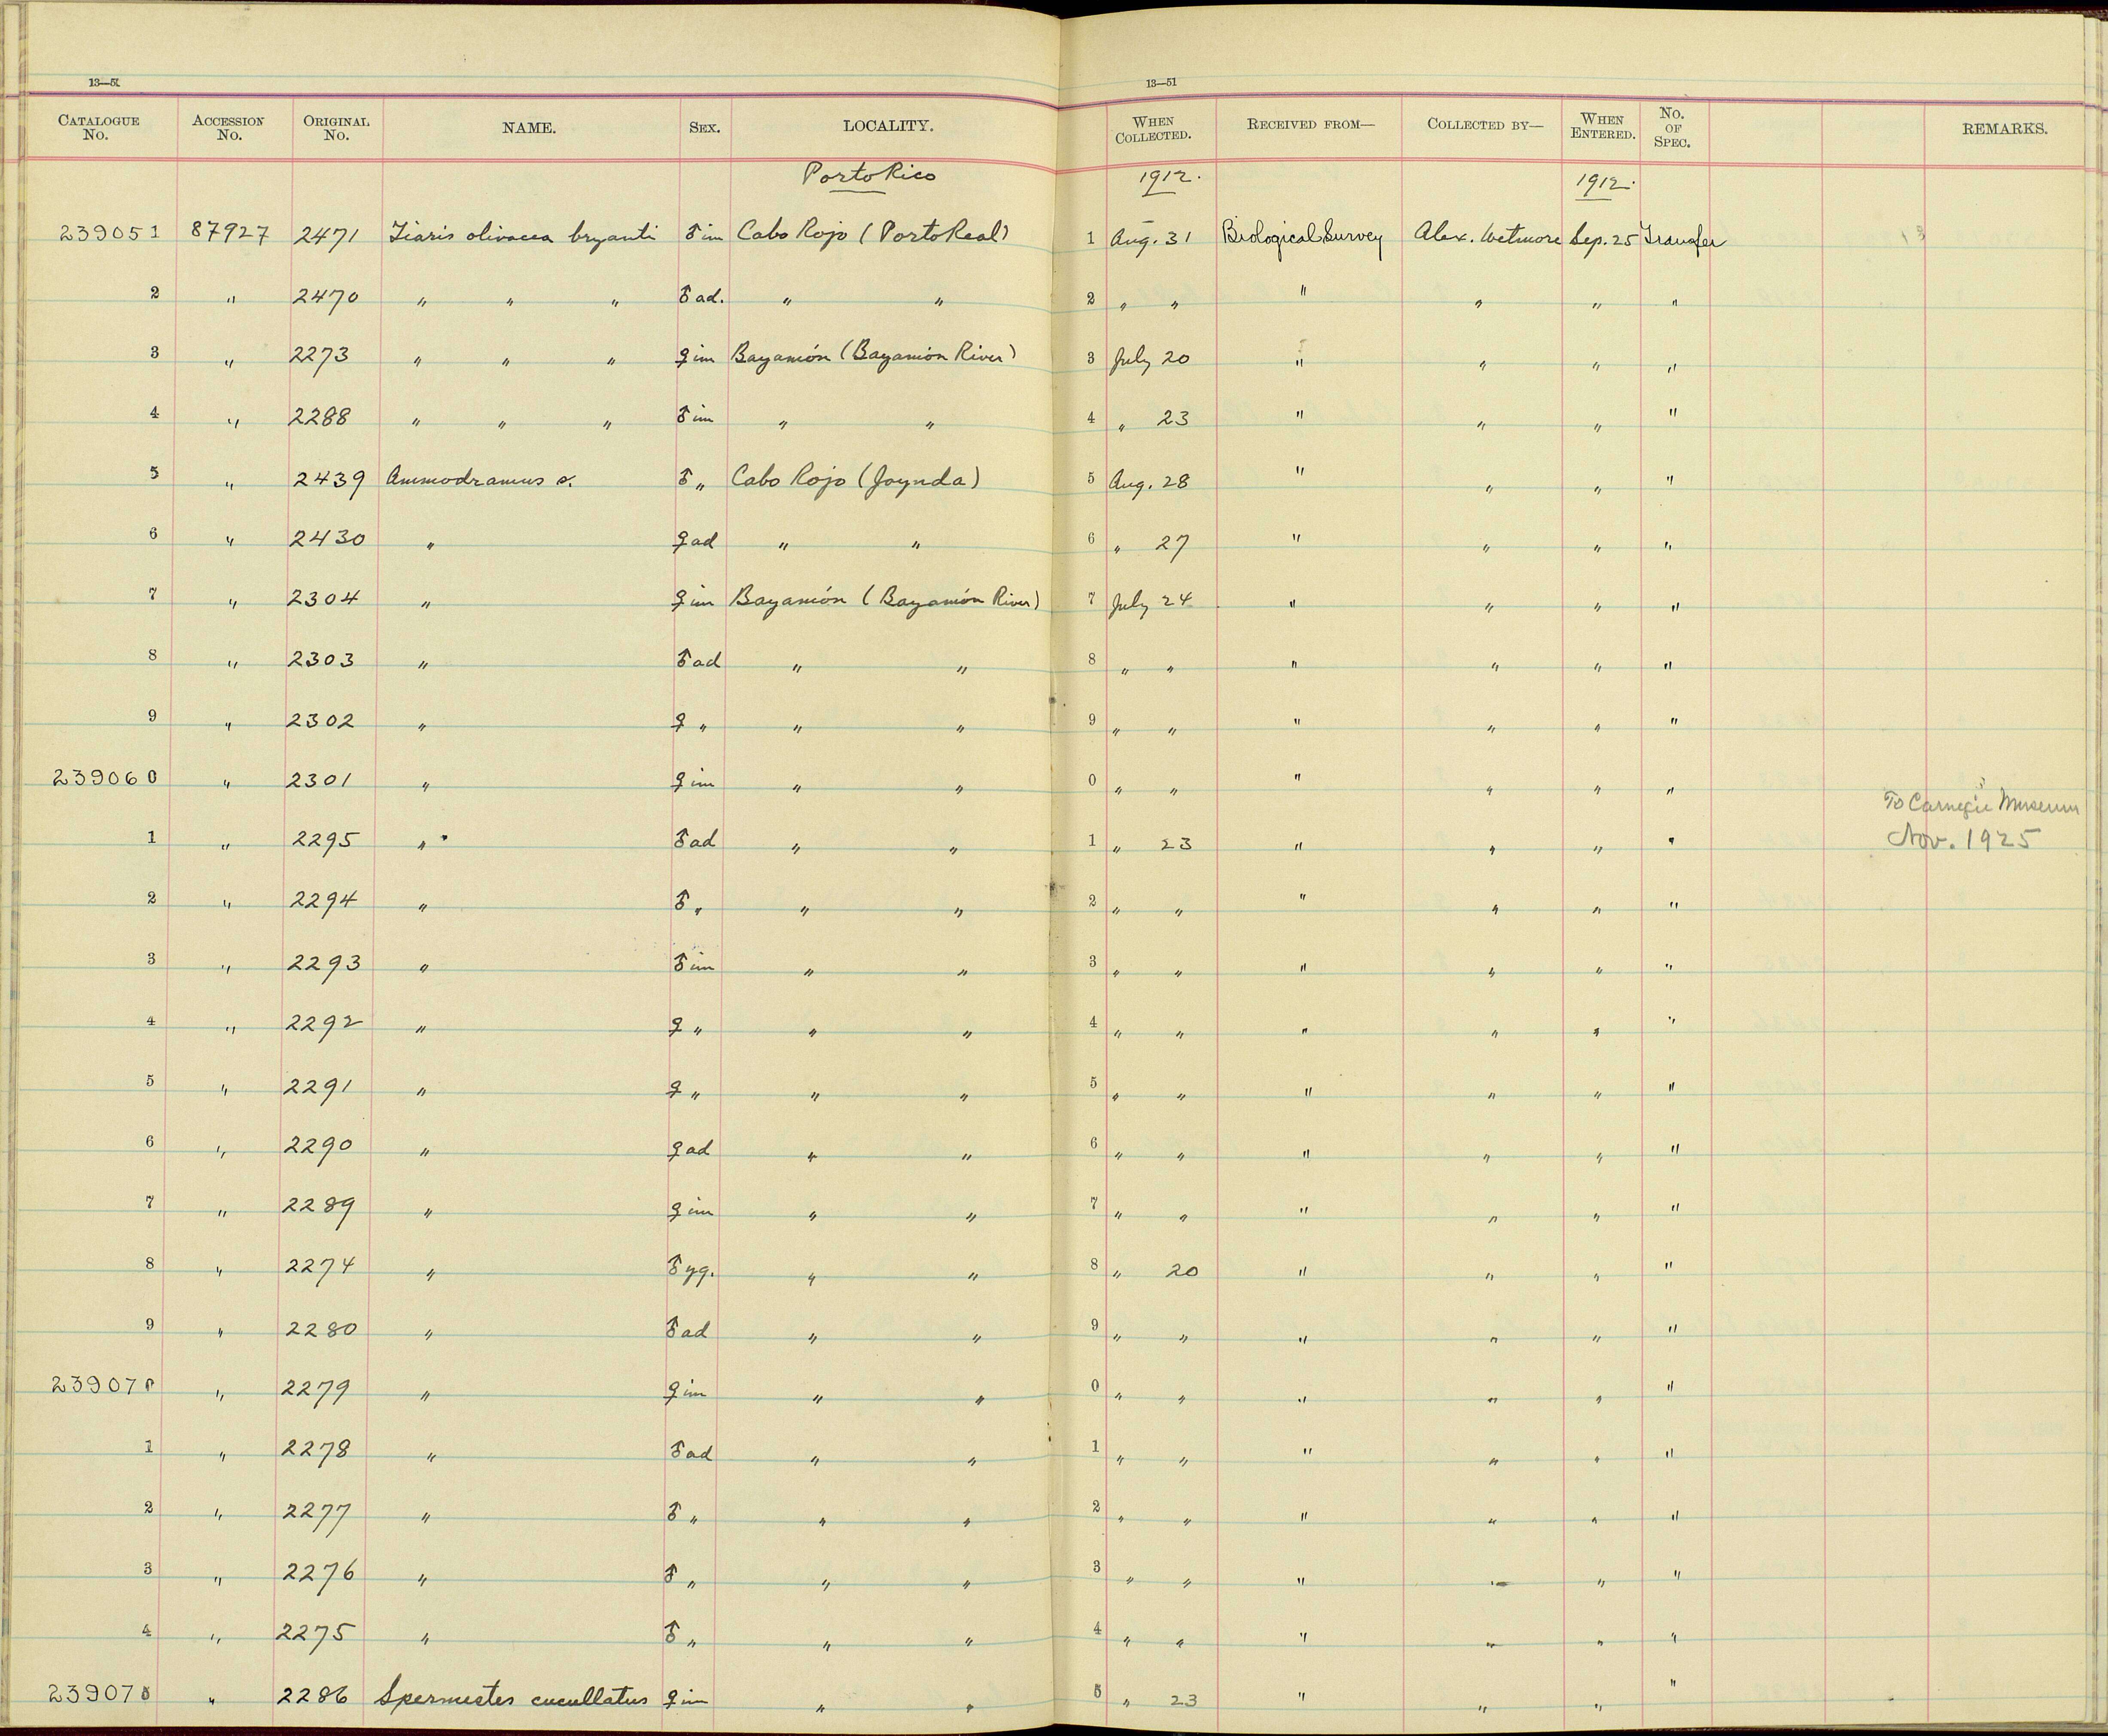 13—51 13—51
CATALOGUE No. ACCESSION No. ORIGINAL No. NAME. SEX. LOCALITY. WHEN COLLECTED. RECEIVED FROM— COLLECTED BY— WHEN ENTERED. No. OF SPEC. REMARKS.
Porto Rico 1912. 1912.
239051 87927 2471 Tiaris olivacea bryanti ♂ im Cabo Rojo (Porto Real) 1 Aug. 31 Biological Survey Alex. Wetmore Sep. 25 Transfer
2 " 2470 " " " ♂ ad. " " 2 " " " " " "
3 " 2273 " " " ♀ im Bayamón (Bayamón River) 3 July 20 " " " "
4 " 2288 " " " ♂ im " " 4 " 23 " " " "
5 " 2439 Ammodramus s. ♂ " Cabo Rojo (Joynda) 5 Aug. 28 " " " "
6 " 2430 " ♀ ad " " 6 " 27 " " " "
7 " 2304 " ♀ im Bayamón (Bayamón River) 7 July 24 " " " "
8 " 2303 " ♂ ad " " 8 " " " " " "
9 " 2302 " ♀ " " " 9 " " " " " "
239060 " 2301 " ♀ im " " 0 " " " " " "
To Carnegie Museum
1 " 2295 " ♂ ad " " 1 " 23 " " " " Nov. 1925
2 " 2294 " ♂ " " " 2 " " " " " "
3 " 2293 " ♂ im " " 3 " " " " " "
4 " 2292 " ♀ " " " 4 " " " " " "
5 " 2291 " ♀ " " " 5 " " " " " "
6 " 2290 " ♀ ad " " 6 " " " " " "
7 " 2289 " ♀ im " " 7 " " " " " "
8 " 2274 " ♂ yg. " " 8 " 20 " " " "
9 " 2280 " ♂ ad " " 9 " " " " " "
239070 " 2279 " ♀ im " " 0 " " " " " "
1 " 2278 " ♂ ad " " 1 " " " " " "
2 " 2277 " ♂ " " " 2 " " " " " "
3 " 2276 " ♂ " " " 3 " " " " " "
4 " 2275 " ♂ " " " 4 " " " " " "
239075 " 2286 Spermestes cucullatus ♀ im " " 5 " 23 " " " "